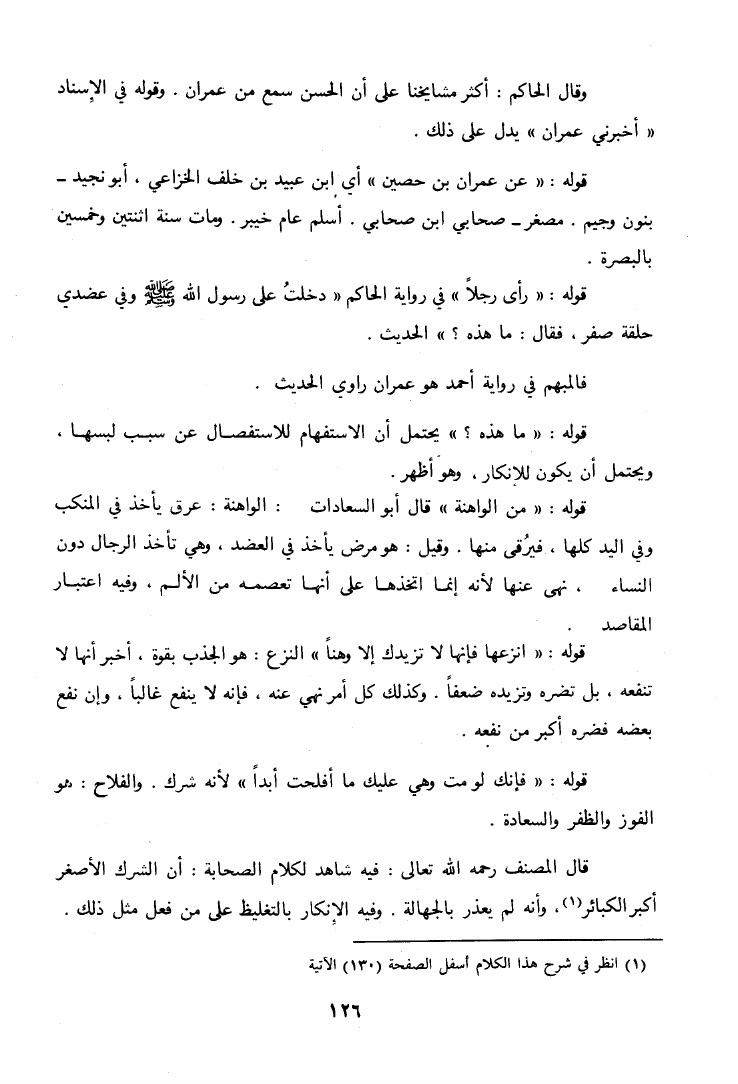 وقال الحاكم : أكثر مشايخنا على أن الحسن سمع من عمران . وقوله في الإسناد
« أخبرني عمران » يدل على ذلك .
قوله : « عن عمران بن حصين » أي ابن عبيد بن خلف الخزاعي ، أبو نجيد ـ
بنون وجيم . مصغر ـ صحابي ابن صحابي . أسلم عام خيبر . ومات سنة اثنتين وخمسين
بالبصرة .
قوله : « رأى رجلاً » في رواية الحاكم « دخلتُ على رسول الله ﷺ وفي عضدي
حلقة صفر ، فقال : ما هذه ؟ » الحديث .
فالمبهم في رواية أحمد هو عمران راوي الحديث .
قوله : « ما هذه ؟ » يحتمل أن الاستفهام للاستفصال عن سبب لبسها ،
ويحتمل أن يكون للإنكار ، وهو أظهر .
قوله : « من الواهنة » قال أبو السعادات : الواهنة : عرق يأخذ في المنكب
وفي اليد كلها ، فيُرقى منها . وقيل : هو مرض يأخذ في العضد ، وهي تأخذ الرجال دون
النساء ، نهى عنها لأنه إنما اتخذها على أنها تعصمه من الألم ، وفيه اعتبار
المقاصد .
قوله : « انزعها فإنها لا تزيدك إلا وهناً » النزع : هو الجذب بقوة ، أخبر أنها لا
تنفعه ، بل تضره وتزيده ضعفاً . وكذلك كل أمر نهي عنه ، فإنه لا ينفع غالباً ، وإن نفع
بعضه فضره أكبر من نفعه .
قوله : « فإنك لو مت وهي عليك ما أفلحت أبداً » لأنه شرك . والفلاح : هو
الفوز والظفر والسعادة .
قال المصنف رحمه الله تعالى : فيه شاهد لكلام الصحابة : أن الشرك الأصغر
أكبر الكبائر(١)، وأنه لم يعذر بالجهالة . وفيه الإنكار بالتغليظ على من فعل مثل ذلك .
(١) انظر في شرح هذا الكلام أسفل الصفحة (١٣٠) الآتية
١٢٦